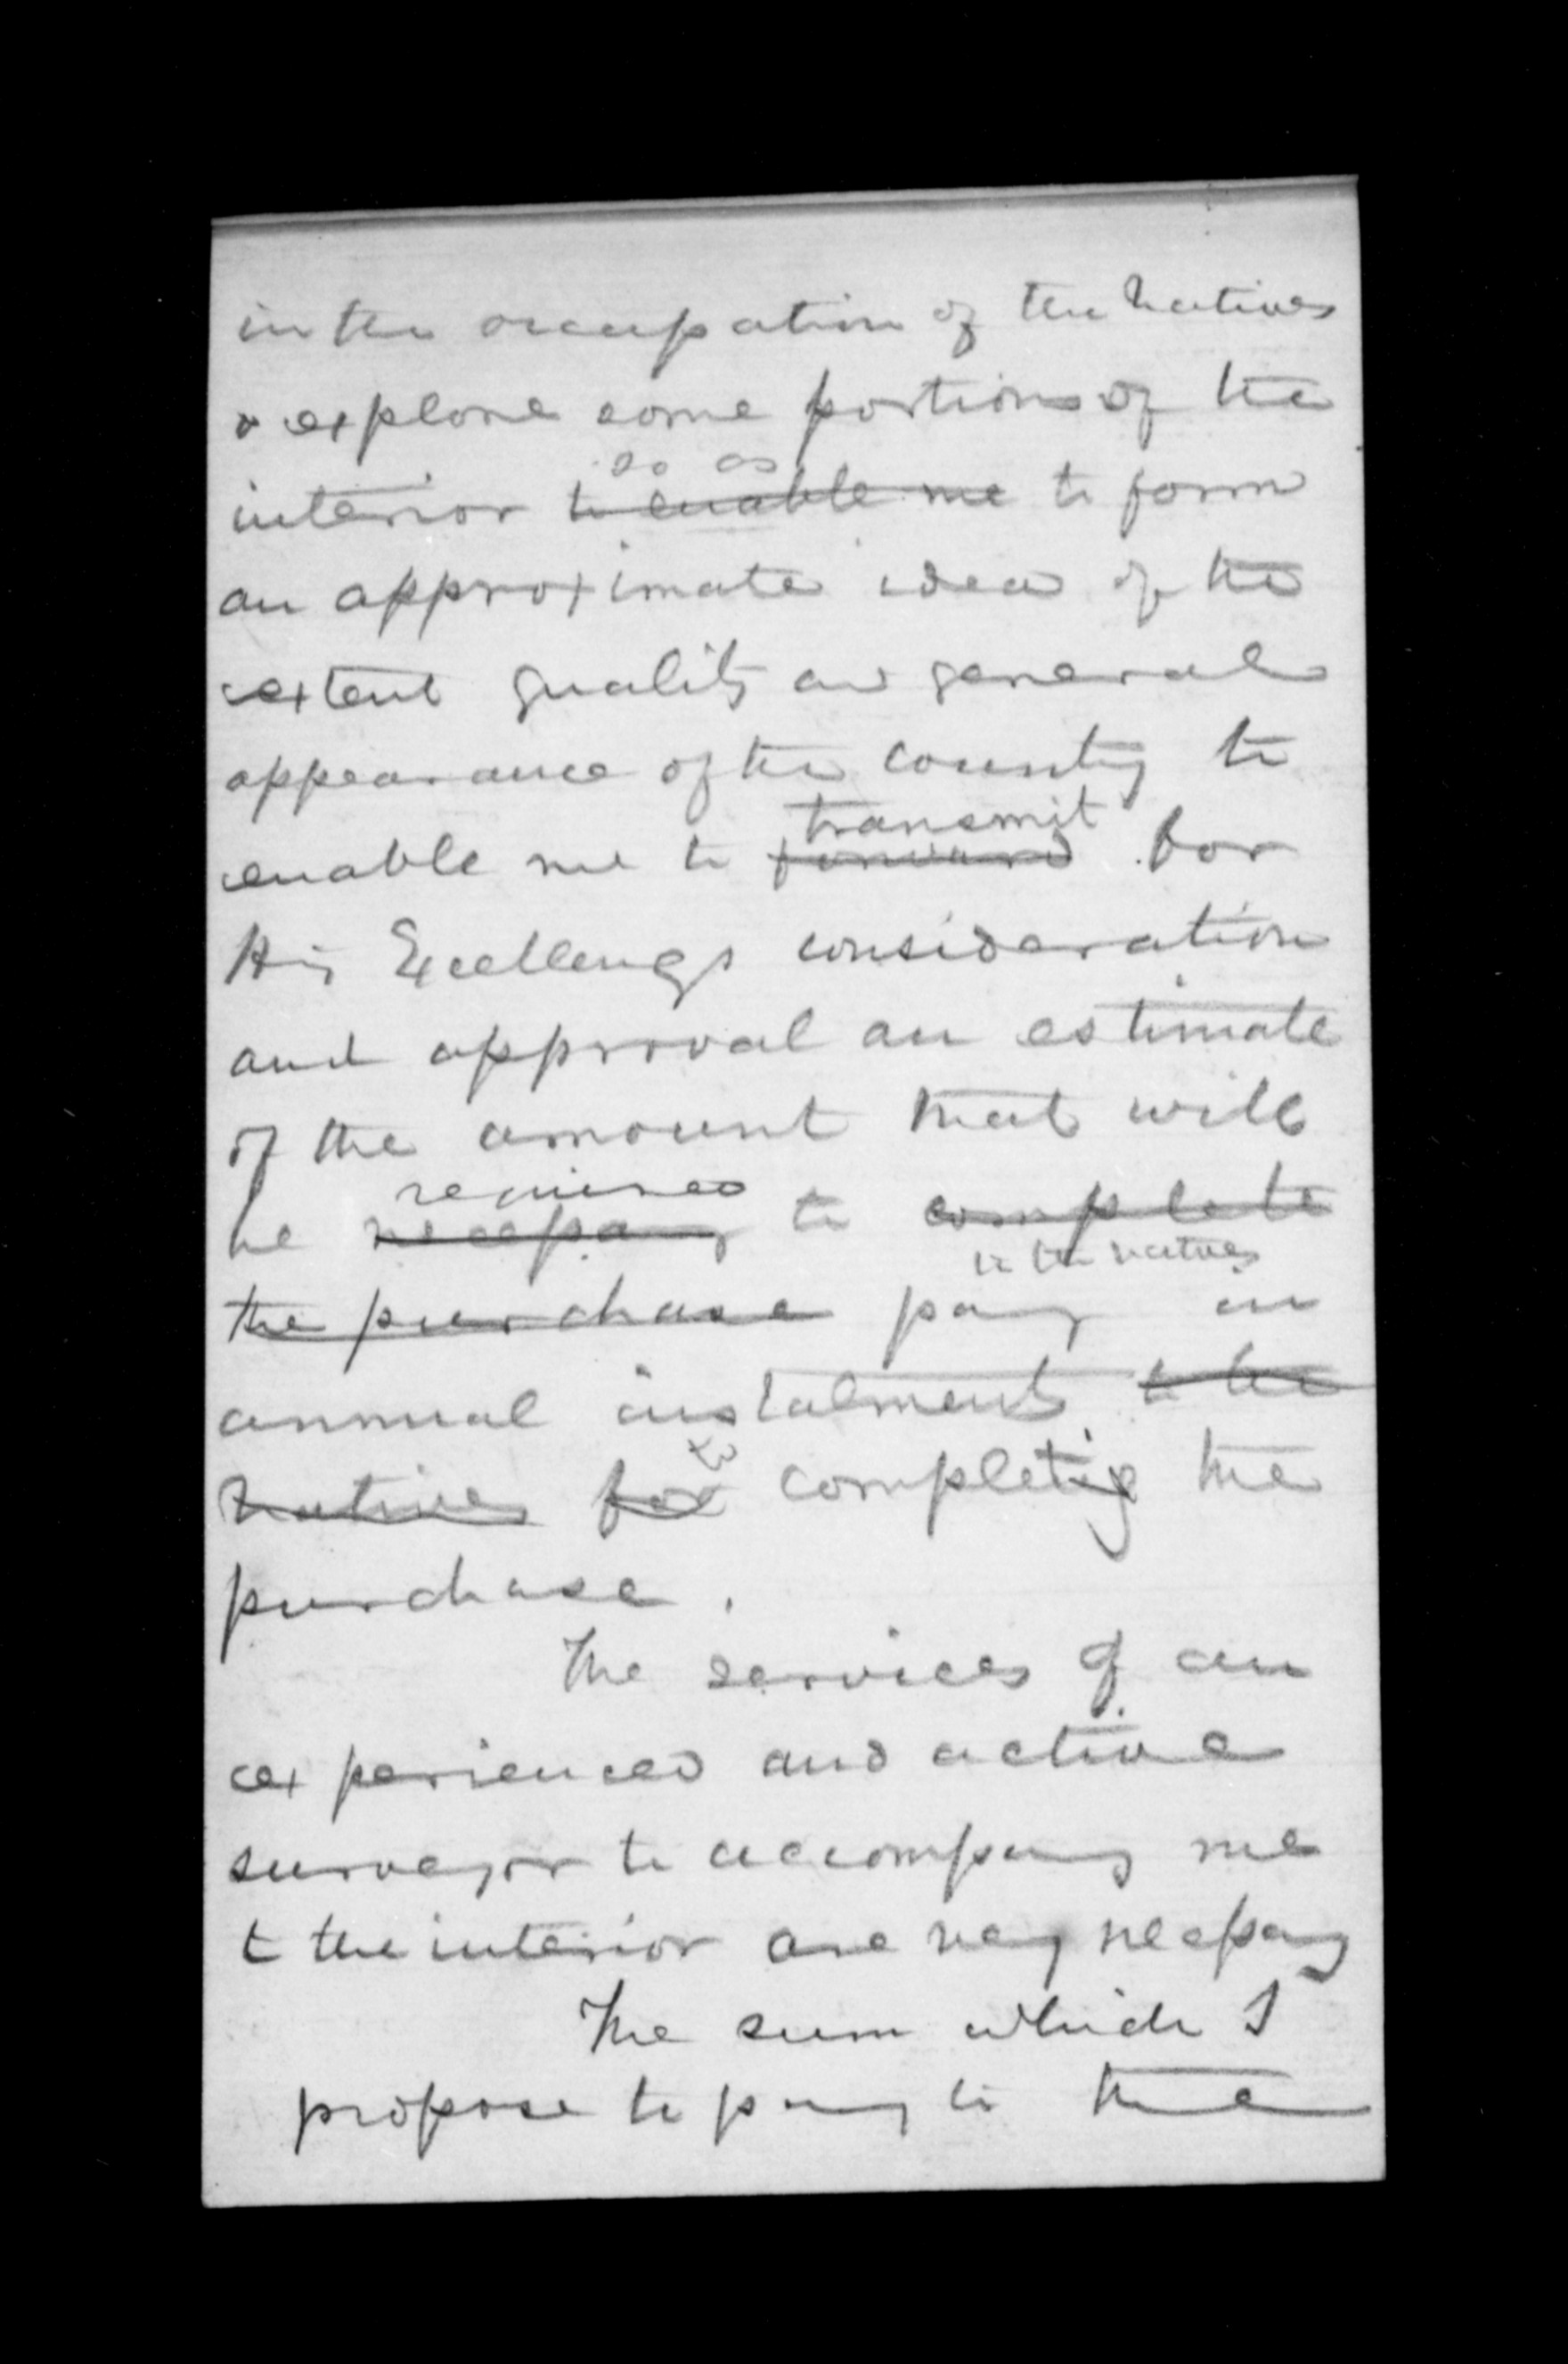 in the occupation of the Natives
& explore some portions of the
so as
interior to enable me to form
an approximate idea of the
extent quality and general
appearance of the country to
transmit
enable me to forward for
His Excellencys consideration
and approval an estimate
of the amount that will
required
be necessary to complete
to the natives
the purchase pay in
annual instalments to the
to
Natives for completing the
purchase.
The services of an
experienced and active
surveyor to accompany me
to the interior are very necessary
The sum which I
propose to pay to the